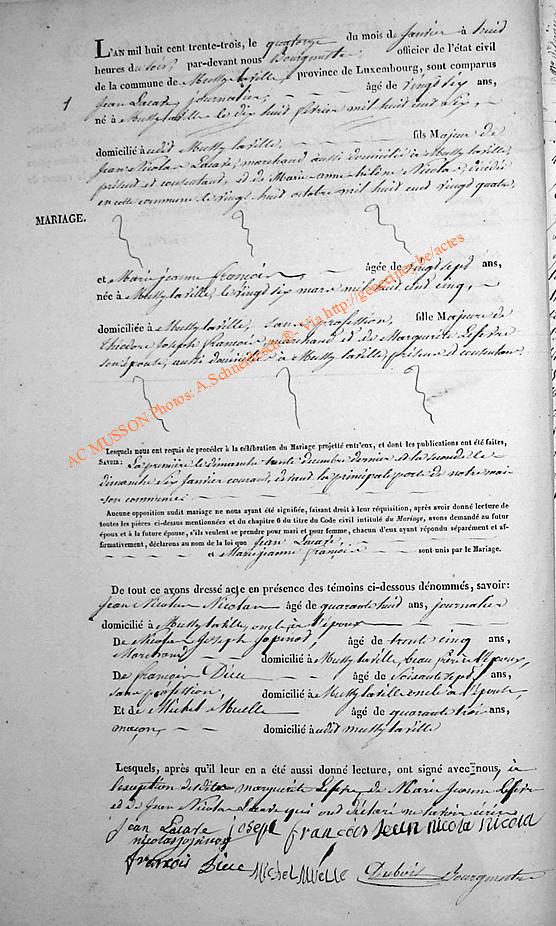 L'AN mil huit cent trente-trois, le quatorze du mois de Janvier à huit
heures du soir, par-devant nous Bourgmestre officier de l'état civil
de la commune de Mussy la ville, province de Luxembourg, sont comparus
1
Jean Lacave journalier, âgé de vingt six ans,
né à Mussy la ville le dix huit février mil huit cent six,
domicilié audit Mussy la ville, fils Majeur de
Jean Nicolas Lacave, marchand aussi domicilié à Mussy la ville,
présent et consentant, et de Marie anne hélène Nicolas, décédée
en cette commune le vingt huit octobre mil huit cent vingt quatre,
MARIAGE.
et Marie jeanne françois, âgée de vingt sept ans,
née à Mussy la ville, le vingt six mars mil huit cent cinq,
domiciliée à Mussy la ville, sans profession, fille Majeure de
théodore Joseph françois, marchand et de Marguerite Lefevre
son épouse, aussi domiciliés à Mussy la ville, présens et consentans.
AC MUSSON Photos: A.Schneidesch ®- Via http://geneciney.be/actes
Lesquels nous ont requis de procéder à la célébration du Mariage projetté entr'eux, et dont les publications ont été faites,
SAVOIR: La première le dimanche trente décembre dernier et la seconde le
dimanche six Janvier courant, devant la principale porte de notre mai
son commune.
Aucune opposition audit mariage ne nous ayant été signifiée, faisant droit à leur réquisition, après avoir donné lecture de
toutes les pièces ci-dessus mentionnées et du chapitre 6 du titre du Code civil intitulé du Mariage, avons demandé au futur
époux et à la future épouse, s'ils veulent se prendre pour mari et pour femme, chacun d'eux ayant répondu séparément et af-
firmativement, déclarons au nom de la loi que Jean Lacave,
et Marie jeanne françois sont unis par le Mariage.
De tout ce avons dressé acte en présence des témoins ci-dessous dénommés, savoir:
Jean Nicolas Nicolas âgé de quarante huit ans, journalier
domicilié à Mussy la ville, oncle à l'époux
De Nicolas Joseph Jopinot, âgé de trente cinq ans,
Marchand domicilié à Mussy la ville, beau frère à l'époux,
De françois Dieu âgé de soixante sept ans,
sans profession, domicilié à Mussy la ville oncle à l'épouse,
Et de Michel Muelle âgé de quarante trois ans,
maçon, domicilié audit mussy la ville
Lesquels, après qu'il leur en a été aussi donné lecture, ont signé avec nous, à
l'exception desdits marguerite Lefevre, de Marie Jeanne
et de Jean Nicolas Lacave qui ont déclaré ne savoir écrire
jean Lacave joseph françois Jean nicola nicola
nicolas jopinot
françois Dieu Michel Muelle Dubois Bourgmestre